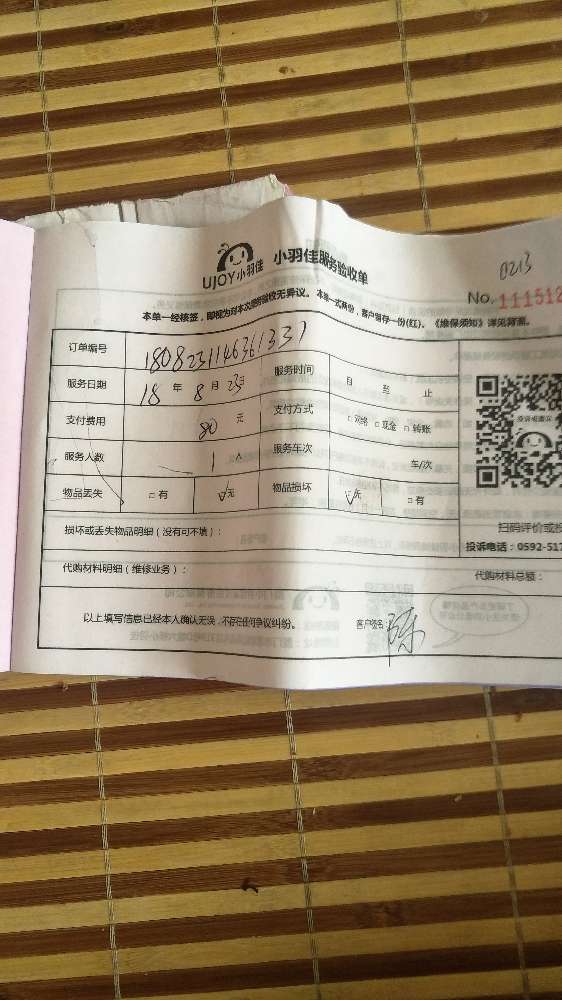 UJOY小羽佳 小羽佳服务验收单
0213
No.111512
本单一经核签，即视为对本次服务验收无异议。本单一式两份，客户留存一份(红)。《维保须知》详见背面。
订单编号 1808231146361331 服务时间 自 至 止
服务日期 18年 8月 23日
支付费用 80 元 支付方式 □网络 □现金 □转账
服务人数 1人 服务车次 车/次
物品丢失 □有 ☑无 物品损坏 ☑无 □有
投诉或建议
扫码评价或投
投诉电话：0592-517
损坏或丢失物品明细（没有可不填）：
代购材料明细（维修业务）： 代购材料总额：
以上填写信息已经本人确认无误，不存在任何争议纠纷。 客户签名： 陈